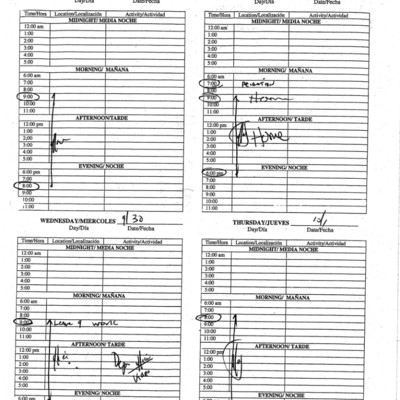 Day/Día Date/Fecha
Time/Hora Location/Localización Activity/Actividad
MIDNIGHT/ MEDIA NOCHE
12:00 am
1:00
2:00
3:00
4:00
5:00
MORNING/ MAÑANA
6:00 am
7:00
8:00
9:00
10:00
11:00
AFTERNOON/TARDE
12:00 pm
1:00
2:00
3:00
4:00
5:00
EVENING/ NOCHE
6:00 pm
7:00
8:00
9:00
10:00
11:00
Day/Día Date/Fecha
Time/Hora Location/Localización Activity/Actividad
MIDNIGHT/ MEDIA NOCHE
12:00 am
1:00
2:00
3:00
4:00
5:00
MORNING/ MAÑANA
6:00 am
7:00
8:00
9:00 Home
10:00
11:00
AFTERNOON/ TARDE
12:00 pm
1:00
2:00 Home
3:00
4:00
5:00
EVENING/ NOCHE
6:00 pm
7:00
8:00
9:00
10:00
11:00
WEDNESDAY/MIERCOLES 9/30
Day/Día Date/Fecha
Time/Hora Location/Localización Activity/Actividad
MIDNIGHT/ MEDIA NOCHE
12:00 am
1:00
2:00
3:00
4:00
5:00
MORNING/ MAÑANA
6:00 am
7:00
8:00
9:00 Leave 4 work
10:00
11:00
AFTERNOON/ TARDE
12:00 pm
1:00
2:00
3:00
4:00
5:00
EVENING/ NOCHE
6:00 pm
THURSDAY/JUEVES 10/1
Day/Día Date/Fecha
Time/Hora Location/Localización Activity/Actividad
MIDNIGHT/ MEDIA NOCHE
12:00 am
1:00
2:00
3:00
4:00
5:00
MORNING/ MAÑANA
6:00 am
7:00
8:00
9:00
10:00
11:00
AFTERNOON/ TARDE
12:00 pm
1:00
2:00
3:00
4:00
5:00
EVENING/ NOCHE
6:00 pm